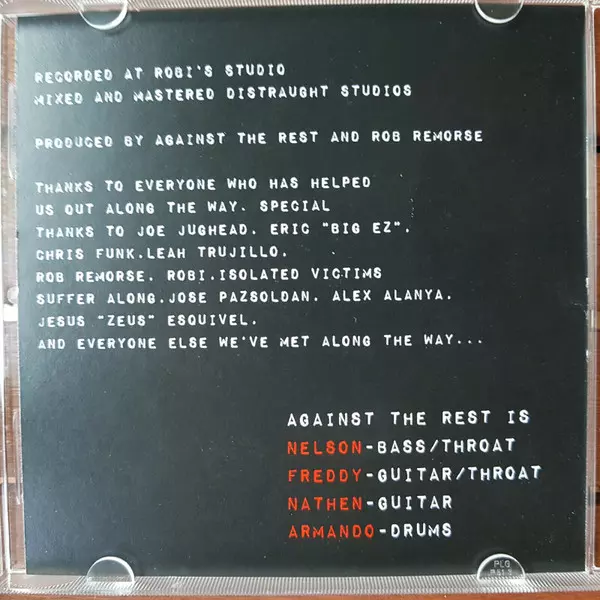 RECORDED AT ROBI'S STUDIO
MIXED AND MASTERED DISTRAUGHT STUDIOS
PRODUCED BY AGAINST THE REST AND ROB REMORSE
THANKS TO EVERYONE WHO HAS HELPED
US OUT ALONG THE WAY. SPECIAL
THANKS TO JOE JUGHEAD. ERIC "BIG EZ".
CHRIS FUNK.LEAH TRUJILLO.
ROB REMORSE. ROBI.ISOLATED VICTIMS
SUFFER ALONG.JOSE PAZSOLDAN. ALEX ALANYA.
JESUS "ZEUS" ESQUIVEL.
AND EVERYONE ELSE WE'VE MET ALONG THE WAY...
AGAINST THE REST IS
NELSON-BASS/THROAT
FREDDY-GUITAR/THROAT
NATHEN-GUITAR
ARMANDO-DRUMS